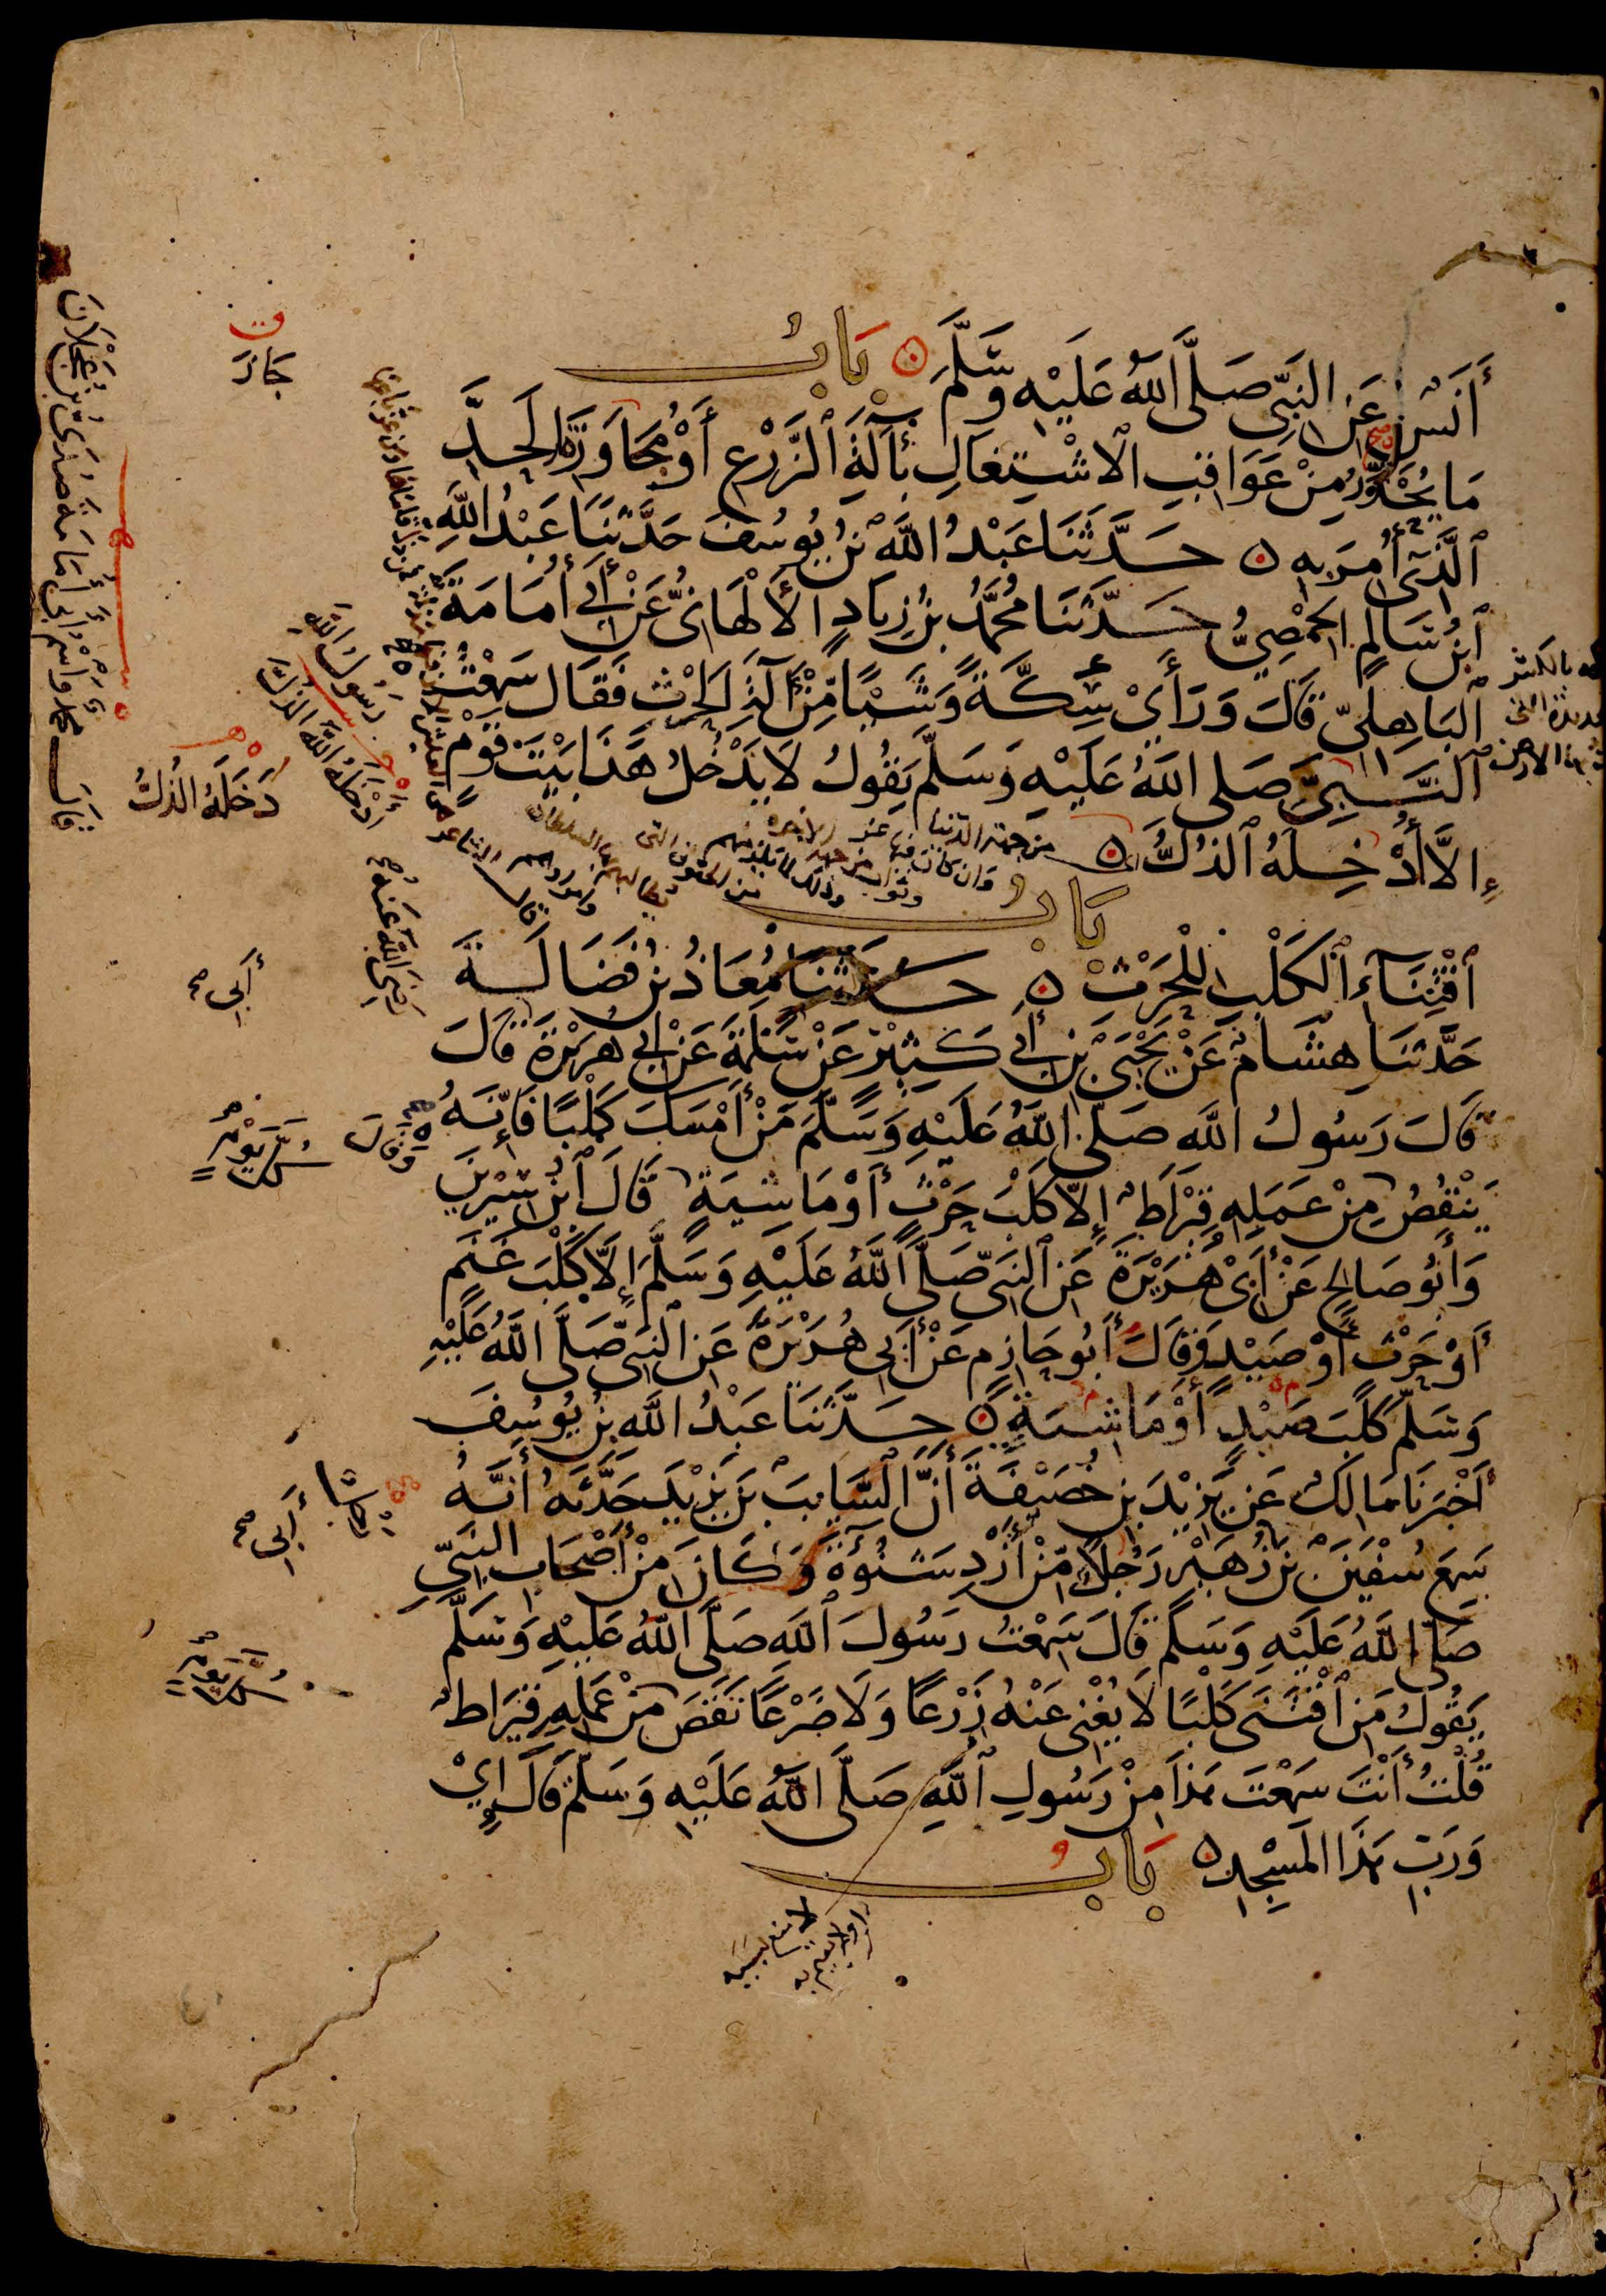 أَنَسٌ عَنِ النَّبِيِّ صَلَّى اللَّهُ عَلَيْهِ وَسَلَّمَ ۞ بَابُ
مَا يُحَذَّرُ مِنْ عَوَاقِبِ الاشْتِغَالِ بِآلَةِ الزَّرْعِ أَوْ مُجَاوَزَةِ الْحَدِّ
الَّذِي أُمِرَ بِهِ ۞ حَدَّثَنَا عَبْدُ اللَّهِ بْنُ يُوسُفَ حَدَّثَنَا عَبْدُ اللَّهِ
ابْنُ سَالِمٍ الحِمْصِيُّ حَدَّثَنَا مُحَمَّدُ بْنُ زِيَادٍ الأَلْهَانِيُّ عَنْ أَبِي أُمَامَةَ
البَاهِلِيِّ قَالَ وَرَأَى سِكَّةً وَشَيْئًا مِنْ آلَةِ الْحَرْثِ فَقَالَ سَمِعْتُ
النَّبِيَّ صَلَّى اللَّهُ عَلَيْهِ وَسَلَّمَ يَقُولُ لَا يَدْخُلُ هَذَا بَيْتَ قَوْمٍ
إِلَّا أُدْخِلَهُ الذُّلُّ ۞
بَابُ
اقْتِنَاءِ الْكَلْبِ لِلْحَرْثِ ۞ حَدَّثَنَا مُعَاذُ بْنُ فَضَالَةَ
حَدَّثَنَا هِشَامٌ عَنْ يَحْيَى بْنِ أَبِي كَثِيرٍ عَنْ سَلَمَةَ عَنْ أَبِي هُرَيْرَةَ قَالَ
قَالَ رَسُولُ اللَّهِ صَلَّى اللَّهُ عَلَيْهِ وَسَلَّمَ مَنْ أَمْسَكَ كَلْبًا فَإِنَّهُ
يَنْقُصُ مِنْ عَمَلِهِ قِيرَاطٌ إِلَّا كَلْبَ حَرْثٍ أَوْ مَاشِيَةٍ قَالَ ابْنُ سِيرِينَ
وَأَبُو صَالِحٍ عَنْ أَبِي هُرَيْرَةَ عَنِ النَّبِيِّ صَلَّى اللَّهُ عَلَيْهِ وَسَلَّمَ إِلَّا كَلْبَ غَنَمٍ
أَوْ حَرْثٍ أَوْ صَيْدٍ وَقَالَ أَبُو حَازِمٍ عَنْ أَبِي هُرَيْرَةَ عَنِ النَّبِيِّ صَلَّى اللَّهُ عَلَيْهِ
وَسَلَّمَ كَلْبَ صَيْدٍ أَوْ مَاشِيَةٍ ۞ حَدَّثَنَا عَبْدُ اللَّهِ بْنُ يُوسُفَ
أَخْبَرَنَا مَالِكٌ عَنْ يَزِيدَ بْنِ خُصَيْفَةَ أَنَّ السَّايِبَ بْنَ يَزِيدَ حَدَّثَهُ أَنَّهُ
سَمِعَ سُفْيَنَ بْنَ زُهَيْرٍ رَجُلًا مِّنْ أَزْدِ شَنُوءَةَ وَكَانَ مِنْ أَصْحَابِ النَّبِيِّ
صَلَّى اللَّهُ عَلَيْهِ وَسَلَّمَ قَالَ سَمِعْتُ رَسُولَ اللَّهِ صَلَّى اللَّهُ عَلَيْهِ وَسَلَّمَ
يَقُولُ مَنِ اقْتَنَى كَلْبًا لَا يُغْنِي عَنْهُ زَرْعًا وَلَا ضَرْعًا نَقَصَ مِنْ عَمَلِهِ قِيرَاطٌ
قُلْتُ أَنْتَ سَمِعْتَ هَذَا مِنْ رَسُولِ اللَّهِ صَلَّى اللَّهُ عَلَيْهِ وَسَلَّمَ قَالَ إِيْ
وَرَبِّ هَذَا الْمَسْجِدِ ۞ بَابُ
جَازَ
رَسُولَ اللَّهِ
أَدْخَلَهُ اللَّهُ الذُّلَّ
دَخَلَهُ الذُّلُّ
رَضِيَ اللَّهُ عَنْهُ
أَبِي
وَقَالَ
كُلَّ يَوْمٍ
أَبِي
كُلَّ يَوْمٍ